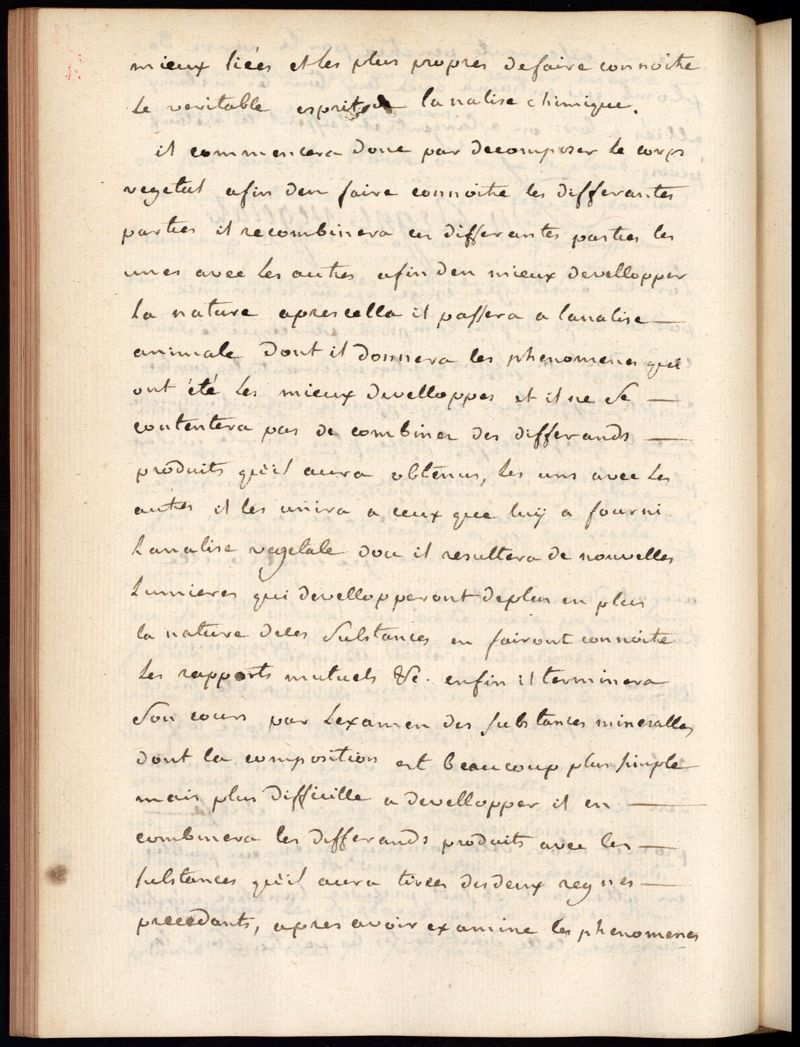 mieux liées et les plus propres defaire connoitre
Le veritable esprit de lanalise chimique.
il commencera donc par decomposer le corps
vegetal afin den faire connoitre les differantes
parties il recombinera ces differantes parties les
unes avec les autres afin den mieux devellopper
La nature aprescella il passera a lanalise —
animale dont il donnera les phenomenes qui
ont été les mieux developpes et il ne se —
contentera pas de combiner des differands —
produits qu'il aura obtenus, les uns avec les
autres il les unira a ceux que luÿ a fourni
Lanalise vegetale dou il resultera de nouvelles
Lumieres qui devellopperont deplus en plus
la nature deces substances en fairont connoitre
Les rapports mutuels &c. enfin il terminera
Son cours par Lexamen des substances mineralles
dont la composition est beaucoup plus simple
mais plus difficille a devellopper il en —
combinera les differands produits avec les —
substances qu'il aura tirées desdeux regnes —
precedants, apres avoir examiné les phenomenes